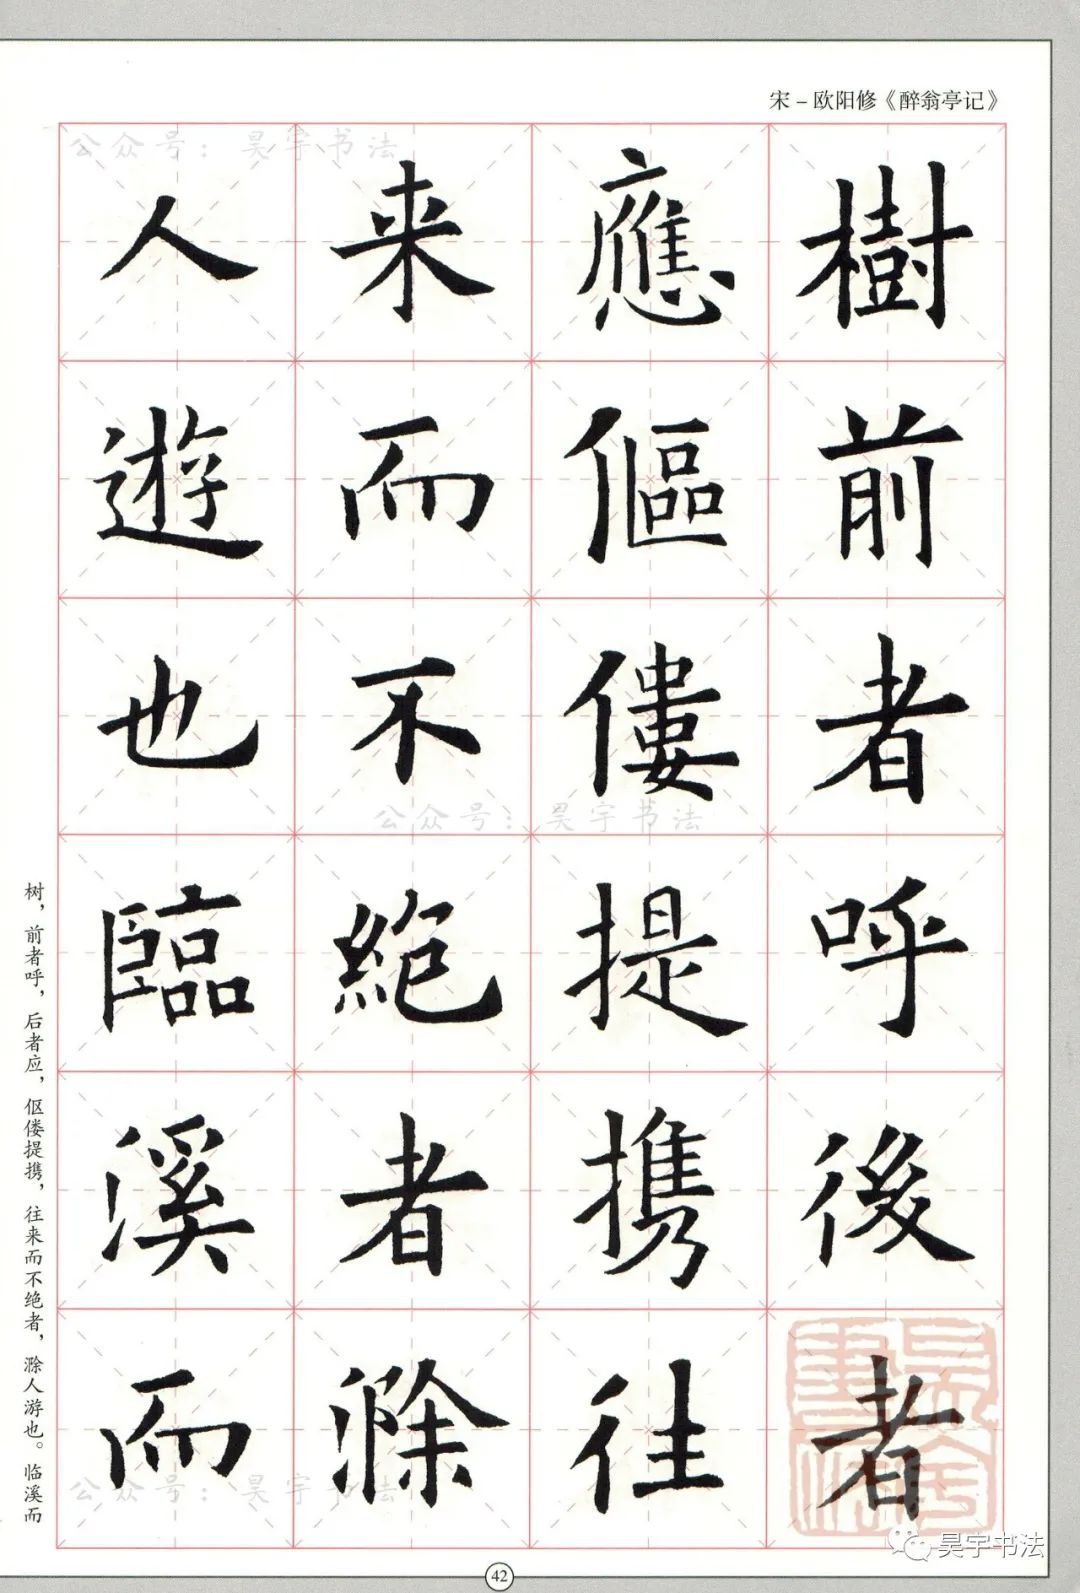 宋－欧阳修《醉翁亭记》
公众号：昊宇书法
樹前者呼後者
應傴僂提携往
来而不絶者滁
人遊也臨溪而
公众号：昊宇书法
公众号：昊宇书法
树，前者呼，后者应，伛偻提携，往来而不绝者，滁人游也。临溪而
昊宇书法
42